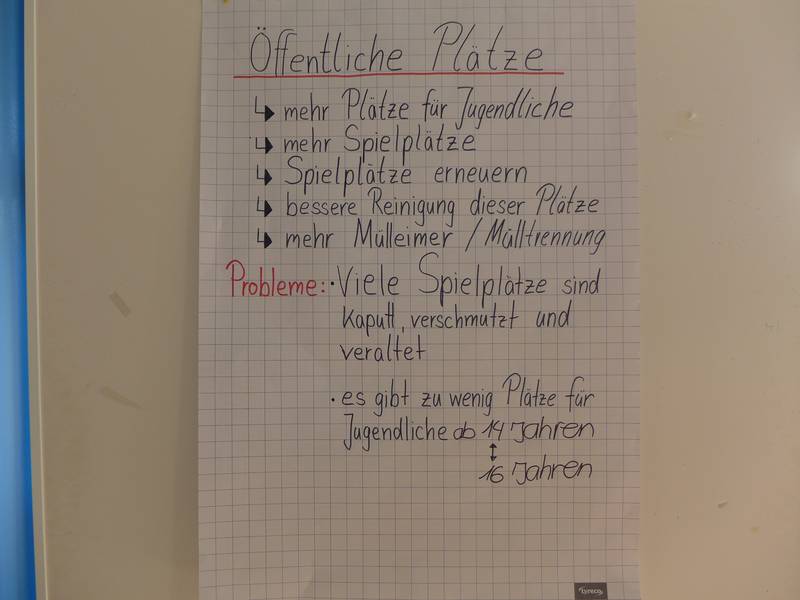 Öffentliche Plätze
↳ mehr Plätze für Jugendliche
↳ mehr Spielplätze
↳ Spielplätze erneuern
↳ bessere Reinigung dieser Plätze
↳ mehr Mülleimer / Mülltrennung
Probleme: · Viele Spielplätze sind
kaputt, verschmutzt und
veraltet
· es gibt zu wenig Plätze für
Jugendliche ab 14 Jahren
↕
16 Jahren